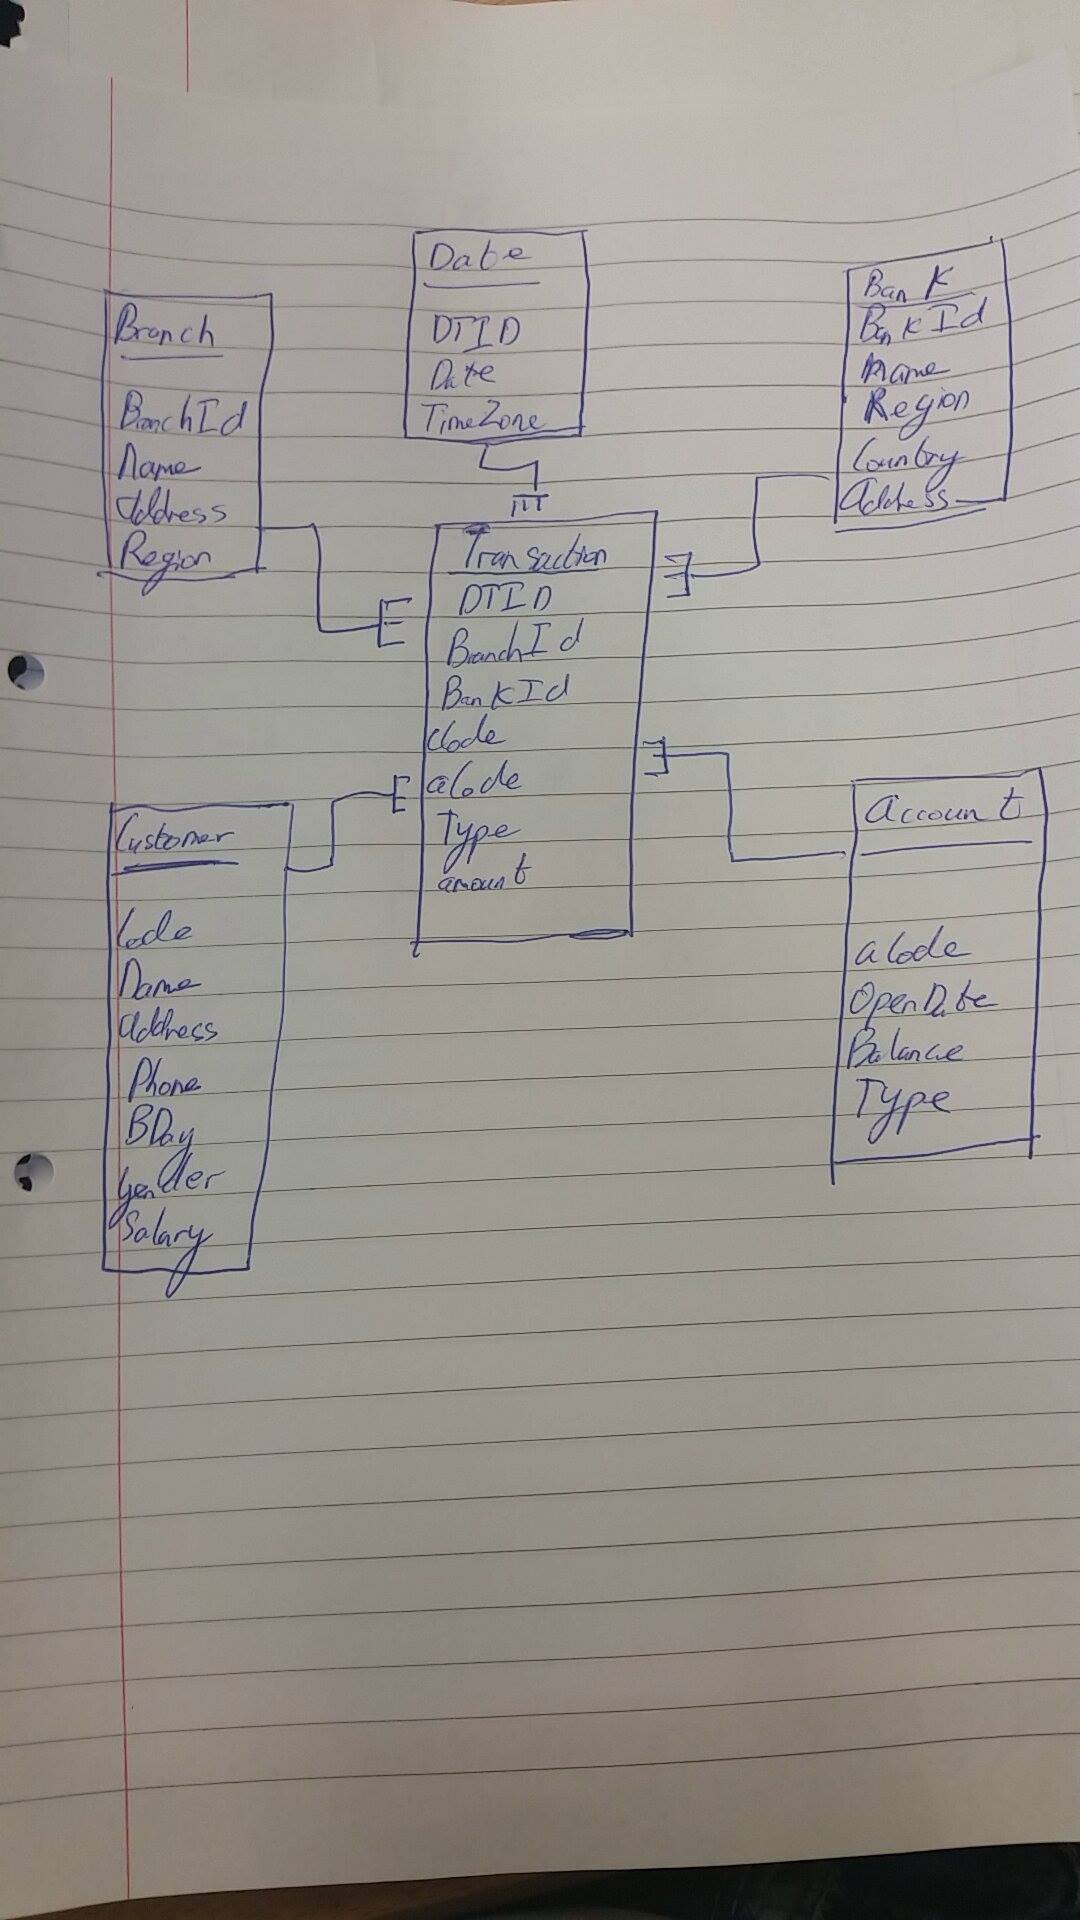 Date
DTID
Date
TimeZone
Branch
BranchId
Name
Address
Region
Bank
BankId
Name
Region
Country
Address
Transaction
DTID
BranchId
BankId
Code
aCode
Type
amount
Customer
Code
Name
Address
Phone
BDay
Gender
Salary
Account
aCode
OpenDate
Balance
Type